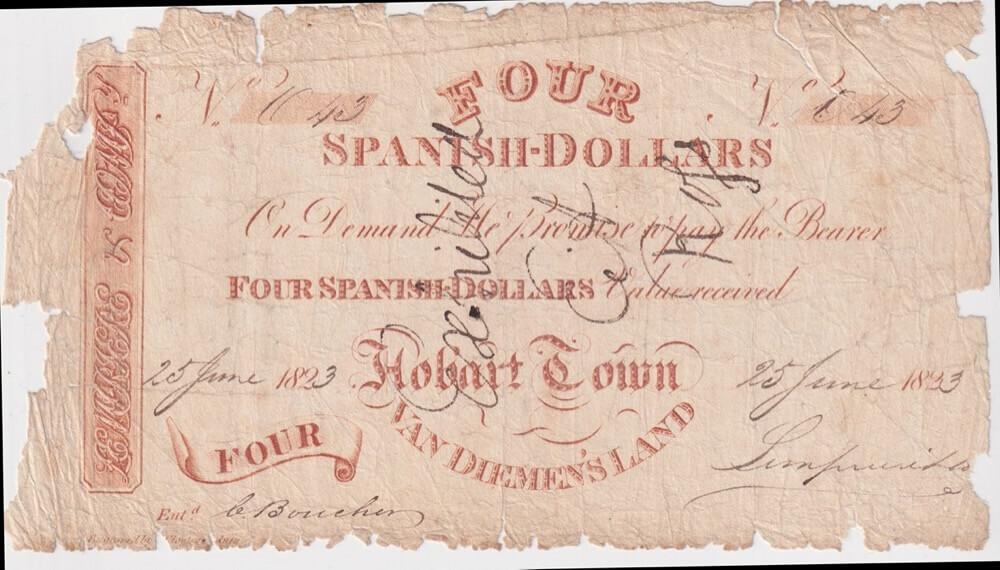 No 1043
No 1043
FOUR
SPANISH-DOLLARS
On Demand We Promise to pay the Bearer
FOUR SPANISH-DOLLARS Value received
25 June 1823
Hobart Town
25 June 1823
VAN DIEMEN'S LAND
FOUR
Ent.d C Boucher
Engraved by
Exhibited